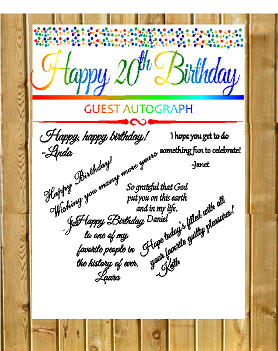 Happy 20th Birthday
GUEST AUTOGRAPH
Happy, happy birthday!
-Linda
I hope you get to do
something fun to celebrate!
-Janet
Happy Birthday!
Wishing you many more years
So grateful that God
put you on this earth
and in my life.
Daniel
Happy Birthday
to one of my
favorite people in
the history of ever.
Laura
Hope today's filled with all
your favorite guilty pleasures!
Keith